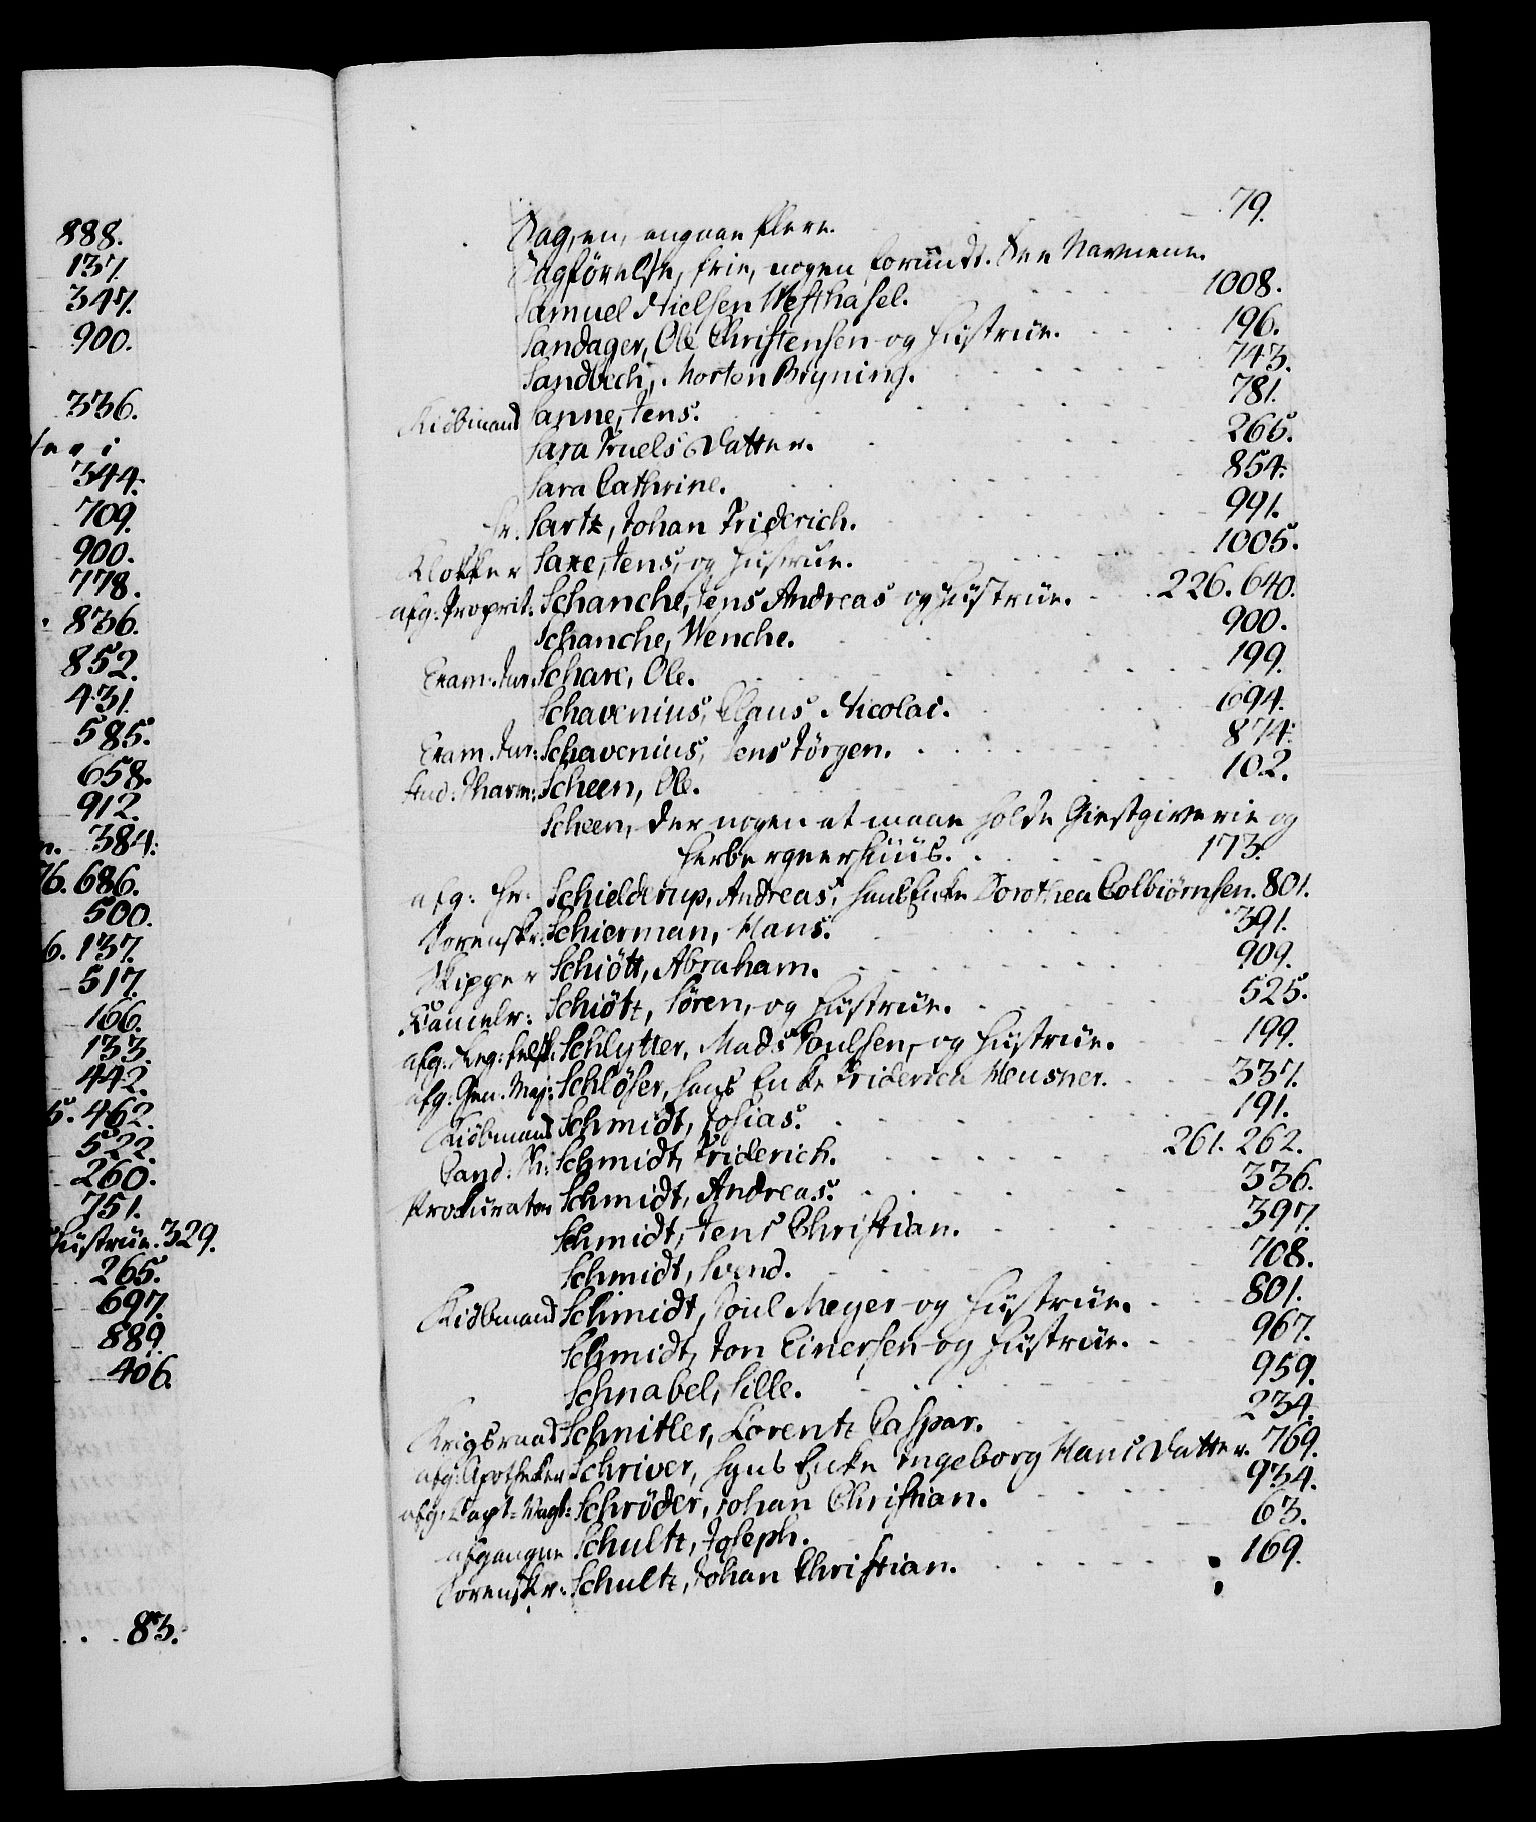 888.
137.
347.
900.
336.
344.
709.
900.
778.
836.
852.
431.
585.
658.
912.
384.
76. 686.
500.
6. 137.
517.
166.
133.
442.
5. 462.
522.
260.
751.
Hustrue. 329.
265.
697.
889.
406.
83.
Sag, en, angaaende flere. 79.
Sagförelse, frie, nogen forundt. See Navnene.
Samuel Nielsen Westhasel. 1008.
Sandager, Ole Christensen og Hustrue. 196.
Sandbech, Morten Bryning. 743.
Kiöbmand Sanne, Jens. 781.
Sara Truels Datter. 265.
Sara Cathrine. 854.
Hr. Sartz, Johan Friderich. 991.
Klokker Saxe, Jens, og Hustrue. 1005.
afg: Proprit: Schanche, Jens Andreas og Hustrue. 226. 640.
Schanche, Wenche. 900.
Exam: Jur: Scharx, Ole. 199.
Schavenius, Claus Nicolai. 1094.
Exam. Jur: Schavenius, Jens Jörgen. 874.
Stud: Pharm: Scheen, Ole. 102.
Scheen, der nogen at maae holde Giestgiverie og
Herbergeerhuus. 173.
afg: Hr: Schielderup, Andreas, hans Enke Dorothea Colbiørnsen. 801.
Sorenskr: Schierman, Hans. 391.
Skipper Schiøtt, Abraham. 909.
Canceler: Schiøtz, Sören, og Hustrue. 525.
afg: Reg: Feldsk: Schlytter, Mads Poulsen, og Hustrue. 199.
afg: Gen. Maj: Schlöser, hans Enke Friderica Meusner. 337.
Kiöbmand Schmidt, Josias. 191.
Cand. Ph: Schmidt, Friderich. 261. 262.
Prokurator Schmidt, Andreas. 336.
Schmidt, Jens Christian. 397.
Schmidt, Svend. 708.
Kiöbmand Schmidt, Poul Meyer og Hustrue. 801.
Schmidt, Jon Einersen og Hustrue. 967.
Schnabel, Sille. 959.
Krigsraad Schnitler, Lorentz Caspar. 234.
afg: Apotheker Schriver, hans Enke Ingeborg Hans Datter. 769.
afg: Capt: Vagt: Schrøder, Johan Christian. 934.
afgangne Schultz, Joseph. 63.
Sorenskr: Schultz, Johan Christian. 169.